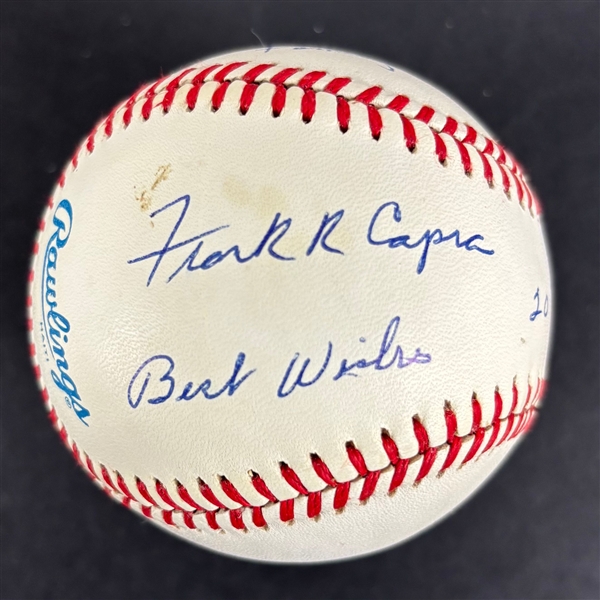 Frank R Capra
Best Wishes
Rawlings
HAITI